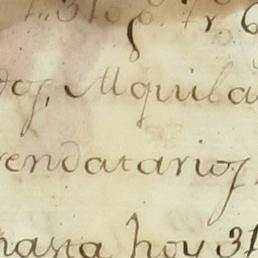 dos, Alquila
rendatarios
hasta hoy 31